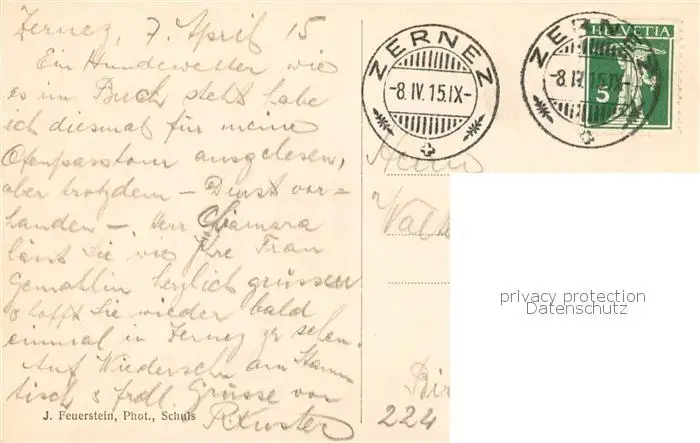 Zernez, 7. April 15
Ein Hundewetter wie
es im Buch steht habe
ich diesmal für meine
Ofenpasstour ausgelesen,
aber trotzdem – Durst vor=
handen –. Herr
lässt Sie wie Ihre Frau
Gemahlin herzlich grüssen
& hofft Sie wieder bald
einmal in Zernez zu sehen.
Auf Wiedersehn am Stamm
tisch & frdl. Grüsse von
J. Feuerstein, Phot., Schuls
ZERNEZ
-8.IV.15.IX-
ZERNEZ
-8.IV.15.IX-
HELVETIA
5
Herrn
224
privacy protection
Datenschutz